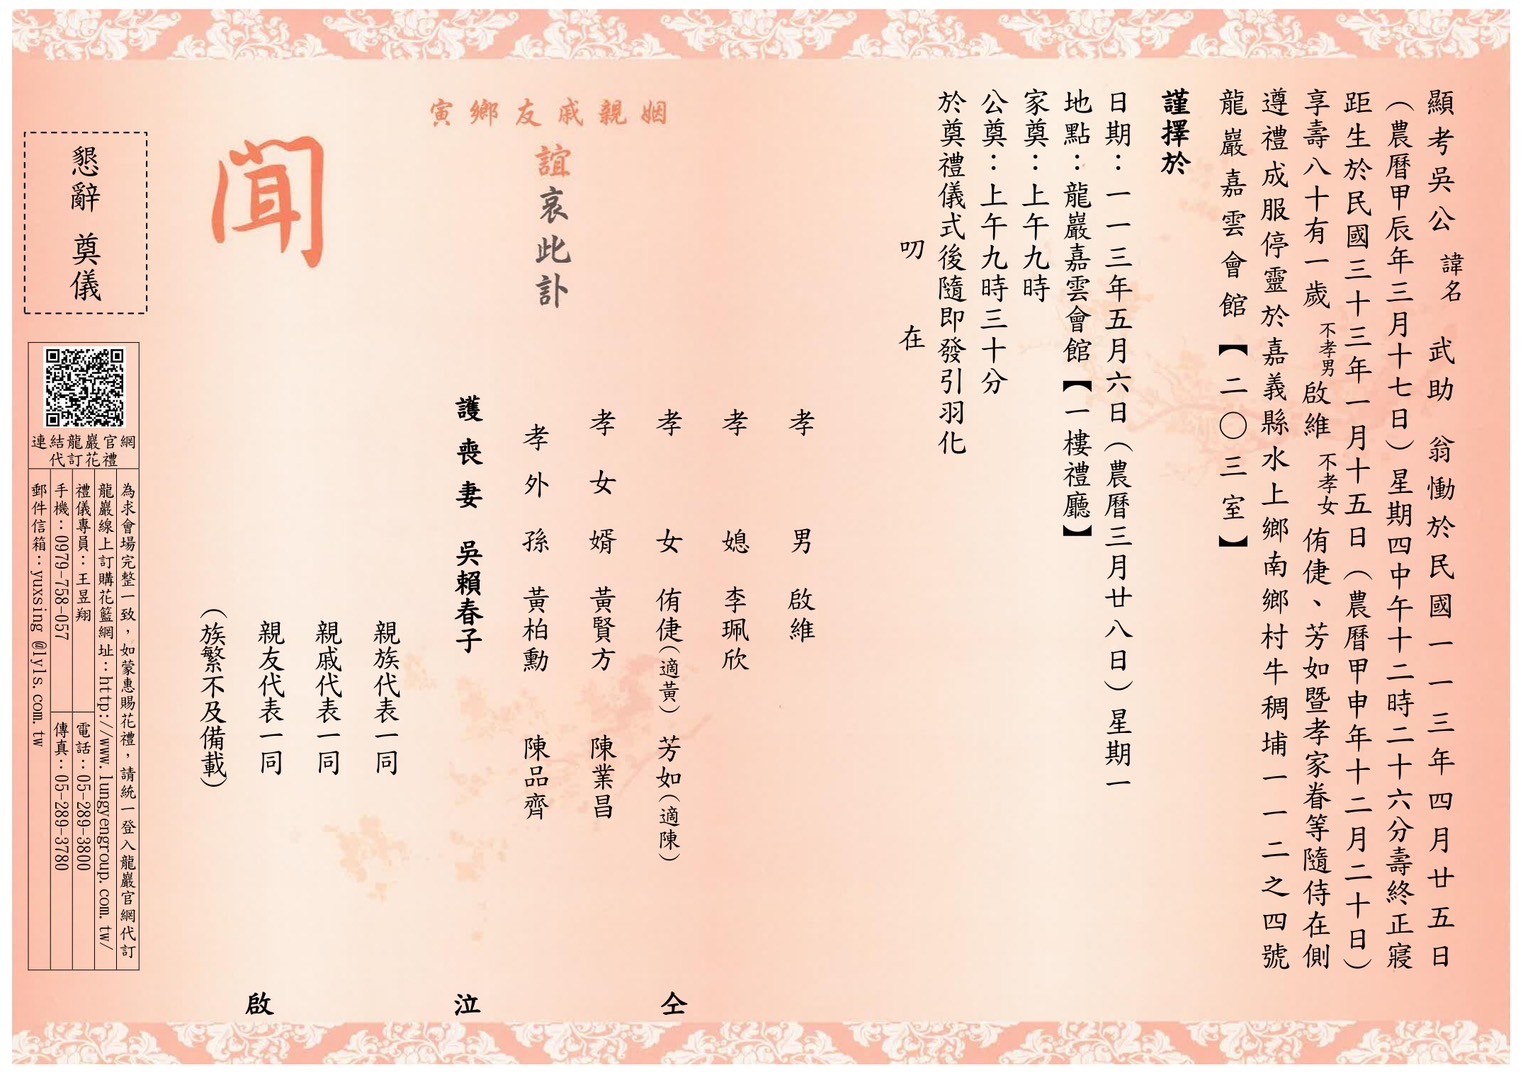 顯考吳公 諱名 武助 翁慟於民國一一三年四月廿五日
（農曆甲辰年三月十七日）星期四中午十二時二十六分壽終正寢
距生於民國三十三年一月十五日（農曆甲申年十二月二十日）
享壽八十有一歲 不孝男 啟維 不孝女 侑倢、芳如暨孝家眷等隨侍在側
遵禮成服停靈於嘉義縣水上鄉南鄉村牛稠埔一一二之四號
龍巖嘉雲會館【二〇三室】
謹擇於
日期：一一三年五月六日（農曆三月廿八日）星期一
地點：龍巖嘉雲會館【一樓禮廳】
家奠：上午九時
公奠：上午九時三十分
於奠禮儀式後隨即發引羽化
叨 在
孝 男 啟維
孝 媳 李珮欣
孝 女 侑倢（適黃） 芳如（適陳）
孝女婿 黃賢方 陳業昌
孝外孫 黃柏勳 陳品齊
護喪妻 吳賴春子
姻親戚友鄉寅
誼哀此訃
聞
親族代表一同
親戚代表一同
親友代表一同
（族繁不及備載）
仝
泣
啟
懇辭 奠儀
連結龍巖官網
代訂花禮
為求會場完整一致，如蒙惠賜花禮，請統一登入龍巖官網代訂
龍巖線上訂購花籃網址：http://www.lungyengroup.com.tw/
禮儀專員：王昱翔
電話：05-289-3800
手機：0979-758-057
傳真：05-289-3780
郵件信箱：yuxsing@lyls.com.tw